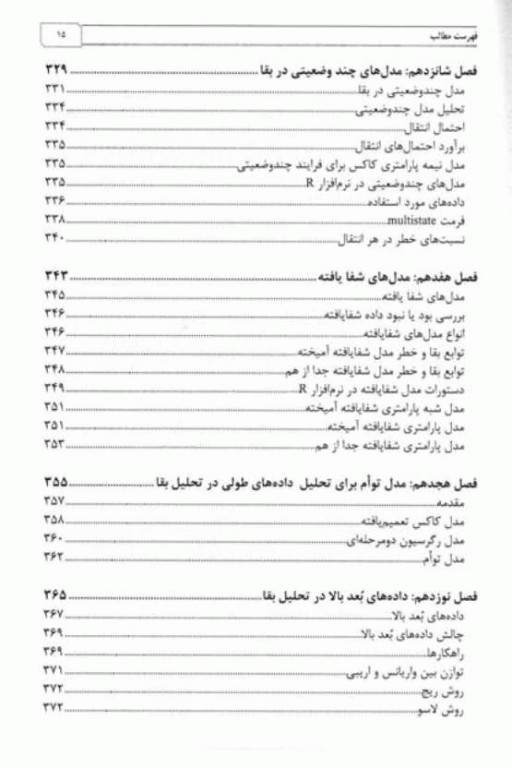 فهرست مطالب ۱۵
فصل شانزدهم: مدل‌های چند وضعیتی در بقا ۳۲۹
مدل چندوضعیتی در بقا ۳۳۱
تحلیل مدل چندوضعیتی ۳۳۴
احتمال انتقال ۳۳۴
برآورد احتمال‌های انتقال ۳۳۵
مدل نیمه پارامتری کاکس برای فرایند چندوضعیتی ۳۳۵
مدل‌های چندوضعیتی در نرم‌افزار R ۳۳۵
داده‌های مورد استفاده ۳۳۶
فرمت multistate ۳۳۸
نسبت‌های خطر در هر انتقال ۳۴۰
فصل هفدهم: مدل‌های شفا یافته ۳۴۳
مدل‌های شفا یافته ۳۴۵
بررسی بود یا نبود داده شفایافته ۳۴۶
انواع مدل‌های شفایافته ۳۴۶
توابع بقا و خطر مدل شفایافته آمیخته ۳۴۷
توابع بقا و خطر مدل شفایافته جدا از هم ۳۴۸
دستورات مدل شفایافته در نرم‌افزار R ۳۴۹
مدل شبه پارامتری شفایافته آمیخته ۳۵۱
مدل پارامتری شفایافته آمیخته ۳۵۱
مدل پارامتری شفایافته جدا از هم ۳۵۳
فصل هجدهم: مدل توأم برای تحلیل داده‌های طولی در تحلیل بقا ۳۵۵
مقدمه ۳۵۷
مدل کاکس تعمیم‌یافته ۳۵۸
مدل رگرسیون دومرحله‌ای ۳۶۰
مدل توأم ۳۶۲
فصل نوزدهم: داده‌های بُعد بالا در تحلیل بقا ۳۶۵
داده‌های بُعد بالا ۳۶۷
چالش داده‌های بُعد بالا ۳۶۹
راهکارها ۳۶۹
توازن بین واریانس و اریبی ۳۷۱
روش ریج ۳۷۲
روش لاسو ۳۷۲